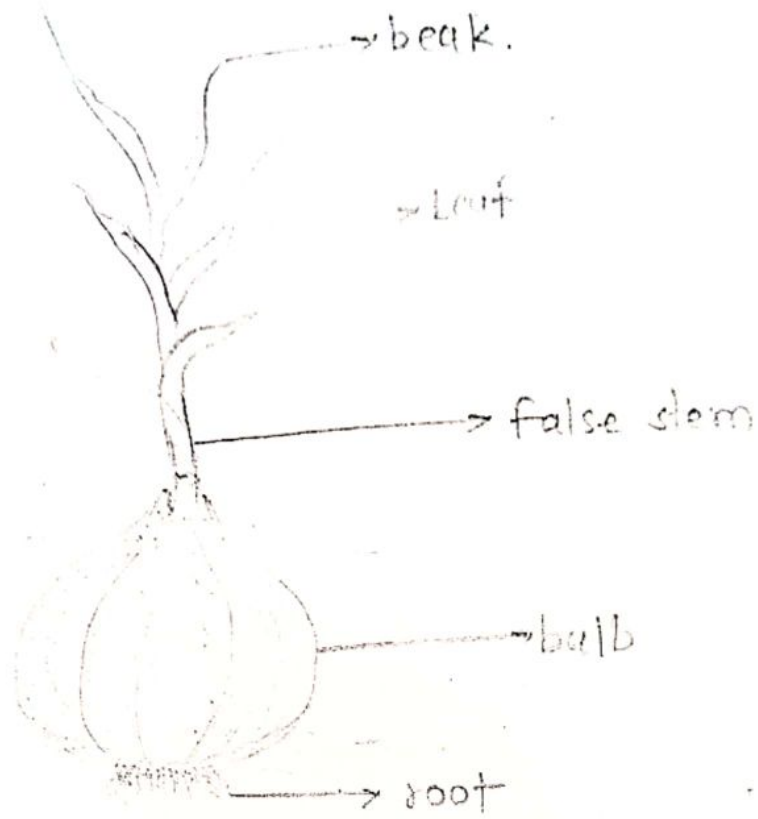 beak.
Leaf
false stem
bulb
root